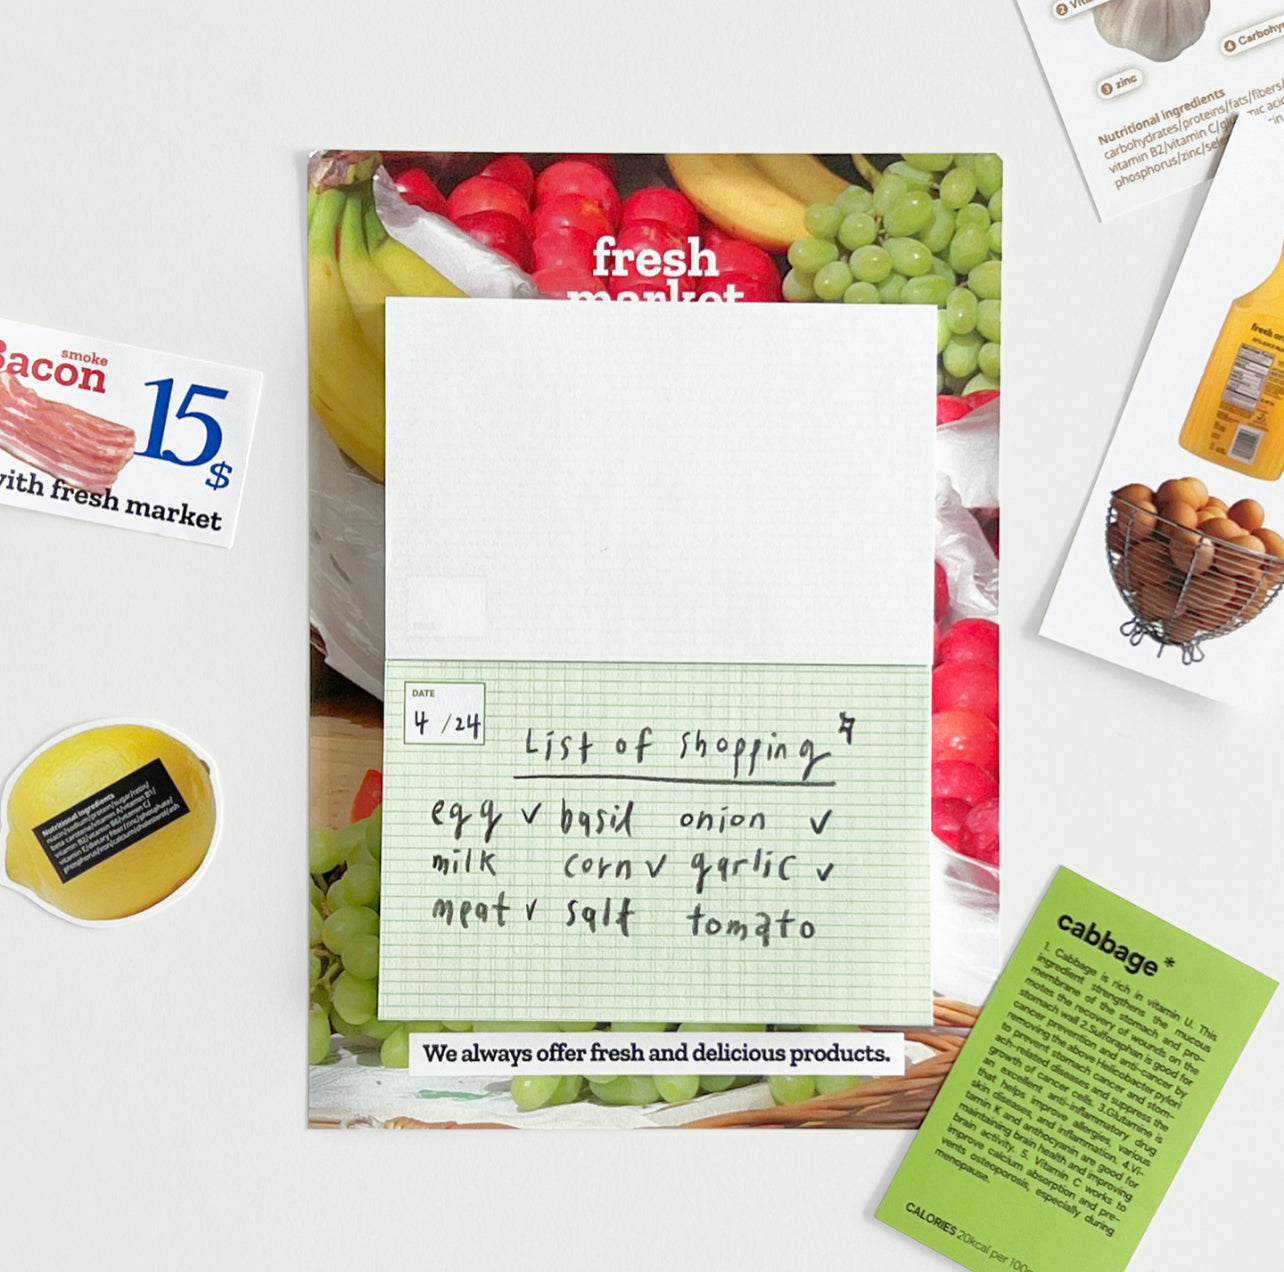 fresh
market
smoke
Bacon
15$
with fresh market
zinc
Nutritional ingredients
carbohydrates/proteins/fats/fibers/
phosphorus/zinc/sele
DATE
4/24
List of shopping
egg ✓ basil onion ✓
milk corn ✓ garlic ✓
meat ✓ salt tomato
We always offer fresh and delicious products.
Nutritional ingredients
cabbage*
1. Cabbage is rich in vitamin U. This
ingredient strengthens the mucous
membrane of the stomach and pro-
motes the recovery of wounds on the
stomach wall 2.Sulforaphan is good for
cancer prevention and anti-cancer by
removing the above Helicobacter pylori
to prevent stomach cancer and stom-
ach-related diseases and suppress the
growth of cancer cells. 3.Glutamine is
an excellent anti-inflammatory drug
that helps improve allergies, various
skin diseases, and inflammation. 4.Vi-
tamin K and anthocyanin are good for
maintaining brain health and improving
brain activity. 5. Vitamin C works to
improve calcium absorption and pre-
vents osteoporosis, especially during
menopause.
CALORIES 20kcal per 100g